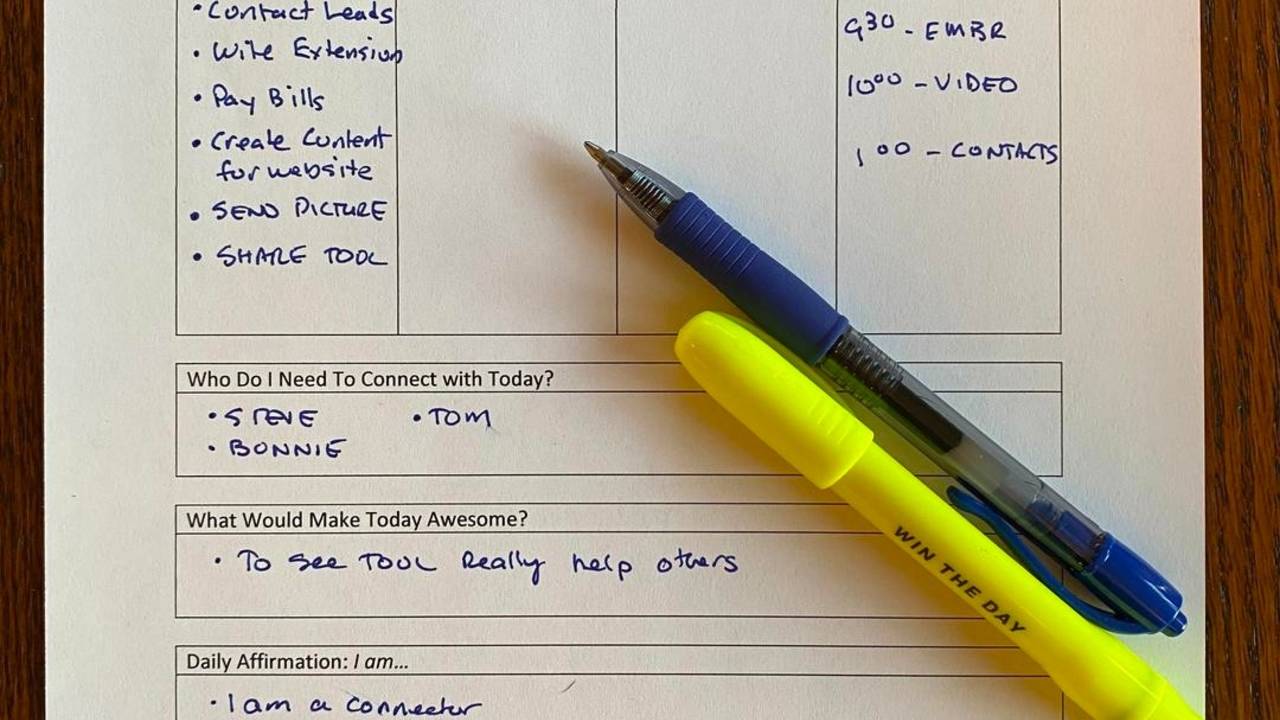 • Contact Leads
• Wire Extension
• Pay Bills
• Create Content
for website
• SEND PICTURE
• SHARE TOOL
9³⁰ - EMBR
10⁰⁰ - VIDEO
1⁰⁰ - CONTACTS
Who Do I Need To Connect with Today?
• STEVE • TOM
• BONNIE
What Would Make Today Awesome?
• To see TOOL Really help others
WIN THE DAY
Daily Affirmation: I am...
• I am a connector